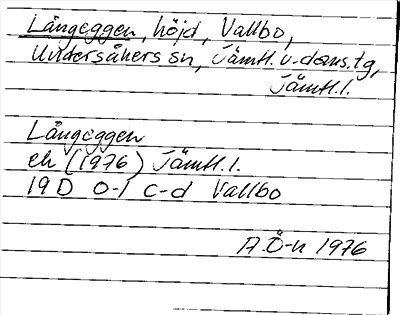 Långeggen, höjd, Vallbo,
Undersåkers sn, Jämtl. v. doms.tg,
Jämtl. l.
Långeggen
ek (1976) Jämtl. l.
19 D 0-1 c-d Vallbo
A.Ö-n 1976